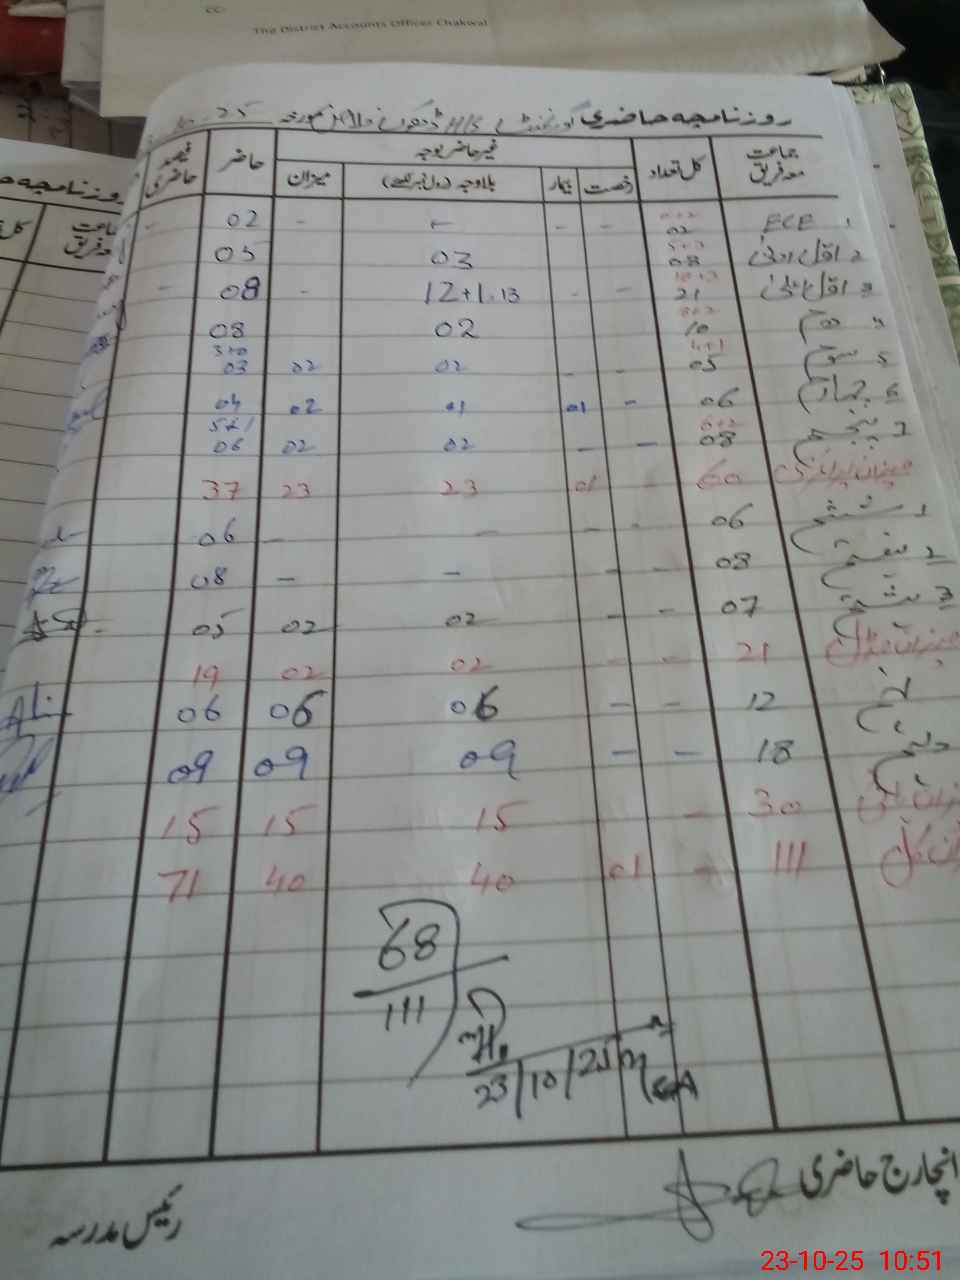 CC:
The District Accounts Offices Chakwal
روزنامچہ حاضری گورنمنٹ HS مورخہ 10 . 25
جماعت معہ فریق کل تعداد غیر حاضر بوجہ حاضر فیصد حاضری
رخصت بیمار بلاوجہ (رول نمبر لکھیے) میزان
1 ECE 02 - - - 02 -
2 اول ادنیٰ 5+3 08 03 05
3 اول اعلیٰ 21 - - 12+1.13 - 08 -
4 دوم 8+2 10 02 08
5 سوم 4+1 05 - - 02 02 3+0 03
6 چہارم 06 - 01 01 02 04
7 پنجم 6+2 08 - - 02 02 5+1 06
میزان پرائمری 60 01 23 23 37
1 ششم 06 - - - - 06
2 ہفتم 08 - - - - 08
3 ہشتم 07 - - 02 02 05
میزان مڈل 21 - - 02 02 19
نہم 12 - - 06 06 06
دہم 18 - - 09 09 09
30 - 15 15 15
میزان کل 111 - 01 40 40 71
68
111
23/10/25
انچارج حاضری
رئیس مدرسہ
روزنامچہ
جماعت معہ فریق
23-10-25 10:51